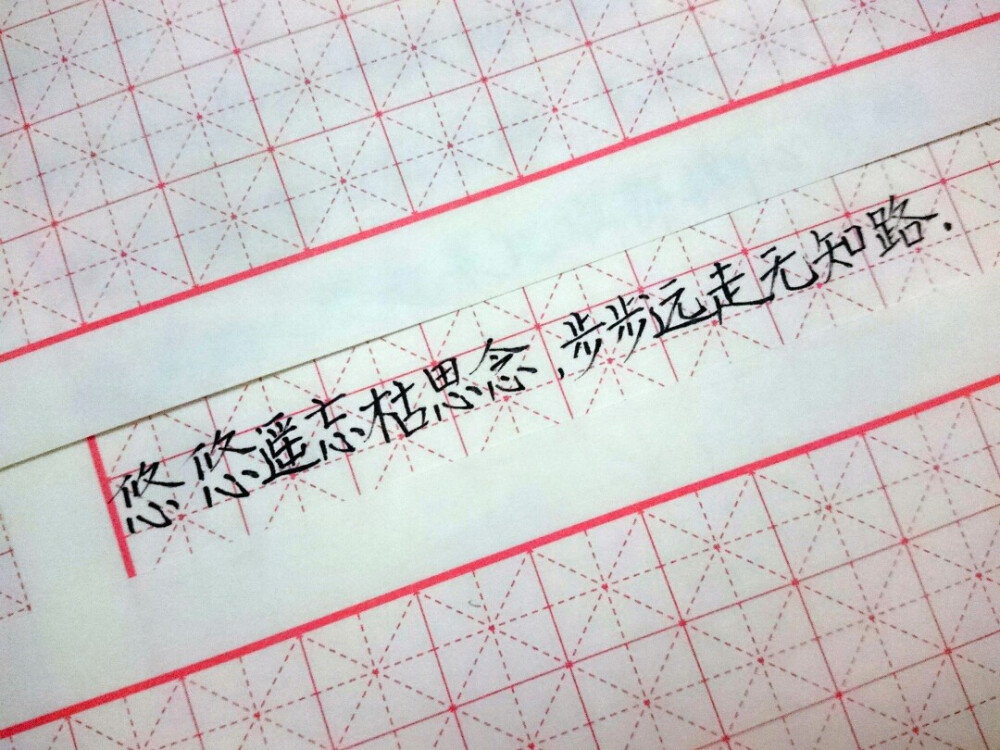 悠悠遥忘枯思念,步步远走无知路.